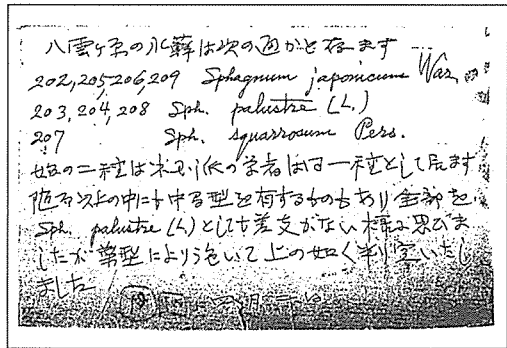 八雲ヶ原の水蘚は次の通かと存ます
202, 205-206, 209 Sphagnum japonicum War.
203, 204, 208 Sph. palustre (L.)
207 Sph. squarrosum Pers.
の二種は 派の学者は 一種として居ます
上の中にも中間型を有するものもあり全部を
Sph. palustre (L) としても差支がない様に思ひま
したが葉型により強いて上の如く判定いたし
ました